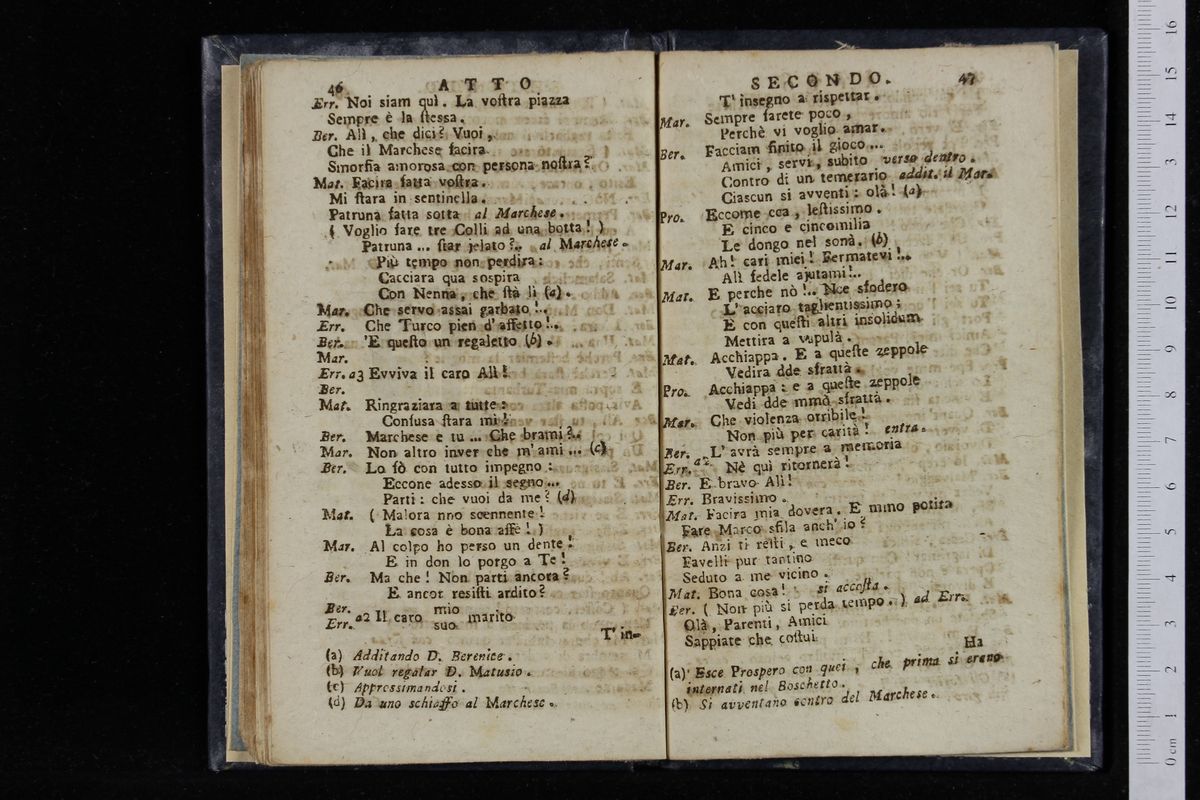 46 ATTO
Err. Noi siam quì. La voſtra piazza
Sempre è la ſteſſa.
Ber. Alì, che dici? Vuoi,
Che il Marchese facira
Smorfia amorosa con persona noſtra?
Mat. Facira fatta voſtra.
Mi ſtara in sentinella.
Patruna fatta sotta al Marchese.
( Voglio fare tre Colli ad una botta! )
Patruna ... ſtar jelato?.. al Marchese.
Più tempo non perdira:
Cacciara qua sospira
Con Nenna, che ſtà lì (a).
Mar. Che servo assai garbato!..
Err. Che Turco pien d'affetto!..
Ber. 'E queſto un regaletto (b).
Mar.
Err. a3 Evviva il caro Alì!
Ber.
Mat. Ringraziara a tutte:
Confusa ſtara mi!
Ber. Marchese e tu ... Che brami?..
Mar. Non altro inver che m'ami ... (c)
Ber. Lo fò con tutto impegno:
Eccone adesso il segno...
Parti: che vuoi da me? (d)
Mat. ( Malora nno scennente!
La cosa è bona affè! )
Mar. Al colpo ho perso un dente!
E in don lo porgo a Te!
Ber. Ma che! Non parti ancora?
E ancor resiſti ardito?
Ber. mio
a2 Il caro marito
Err. suo
T' in-
(a) Additando D. Berenice.
(b) Vuol regalar D. Matusio.
(c) Appressimandosi.
(d) Da uno schiaffo al Marchese.
SECONDO. 47
T' insegno a rispettar.
Mar. Sempre farete poco,
Perchè vi voglio amar.
Ber. Facciam finito il gioco...
Amici, servi, subito verso dentro.
Contro di un temerario addit. il Mar.
Ciascun si avventi: olà! (a)
Pro. Eccome cca, leſtissimo.
E cinco e cincomilia
Le dongo nel sonà. (b)
Mar. Ah! cari miei! Fermatevi!..
Alì fedele ajutami!..
Mat. E perche nò!.. Nce sfodero
L'acciaro taglientissimo;
E con queſti altri insolidum
Mettira a vapulà.
Mat. Acchiappa. E a queſte zeppole
Vedira dde sfrattà.
Pro. Acchiappa: e a queſte zeppole
Vedi dde mmò sfrattà.
Mar. Che violenza orribile!
Non più per carità! entra.
Ber. L'avrà sempre a memoria
a2
Err. Nè quì ritornerà!
Ber. E bravo Alì!
Err. Bravissimo.
Mat. Facira mia dovera. E mmo potira
Fare Marco sfila anch'io?
Ber. Anzi ti reſti, e meco
Favelli pur tantino
Seduto a me vicino.
Mat. Bona cosa! si accoſta.
Ber. ( Non più si perda tempo. ) ad Err.
Olà, Parenti, Amici
Sappiate che coſtui
Ha
(a) Esce Prospero con quei, che prima si erano
internati nel Boschetto.
(b) Si avventano contro del Marchese.
0 cm 1 2 3 4 5 6 7 8 9 10 11 12 13 14 15 16